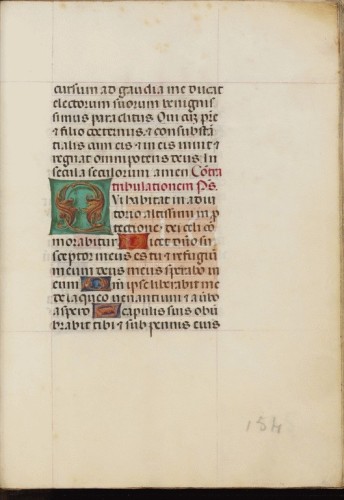 cursum ad gaudia me ducat
electorum suorum benignis
simus paraclitus. Qui cũ pr̃e
& filio coeternus. & consubstã
tialis cum eis & in eis uiuit &
regnat omnipotens deus. In
secula seculorum amen Contra
tribulationem Ps.
Qui habitat in adiu
torio altissimi in p
tectione dei celi cõ
morabitur. Dicet dño su
sceptor meus es tu & refugiũ
meum deus meus sperabo in
eum. Qm̃ ipse liberabit me
de laqueo uenantium & a ũbo
aspero. Scapulis suis obũ
brabit tibi & sub pennis eius
154